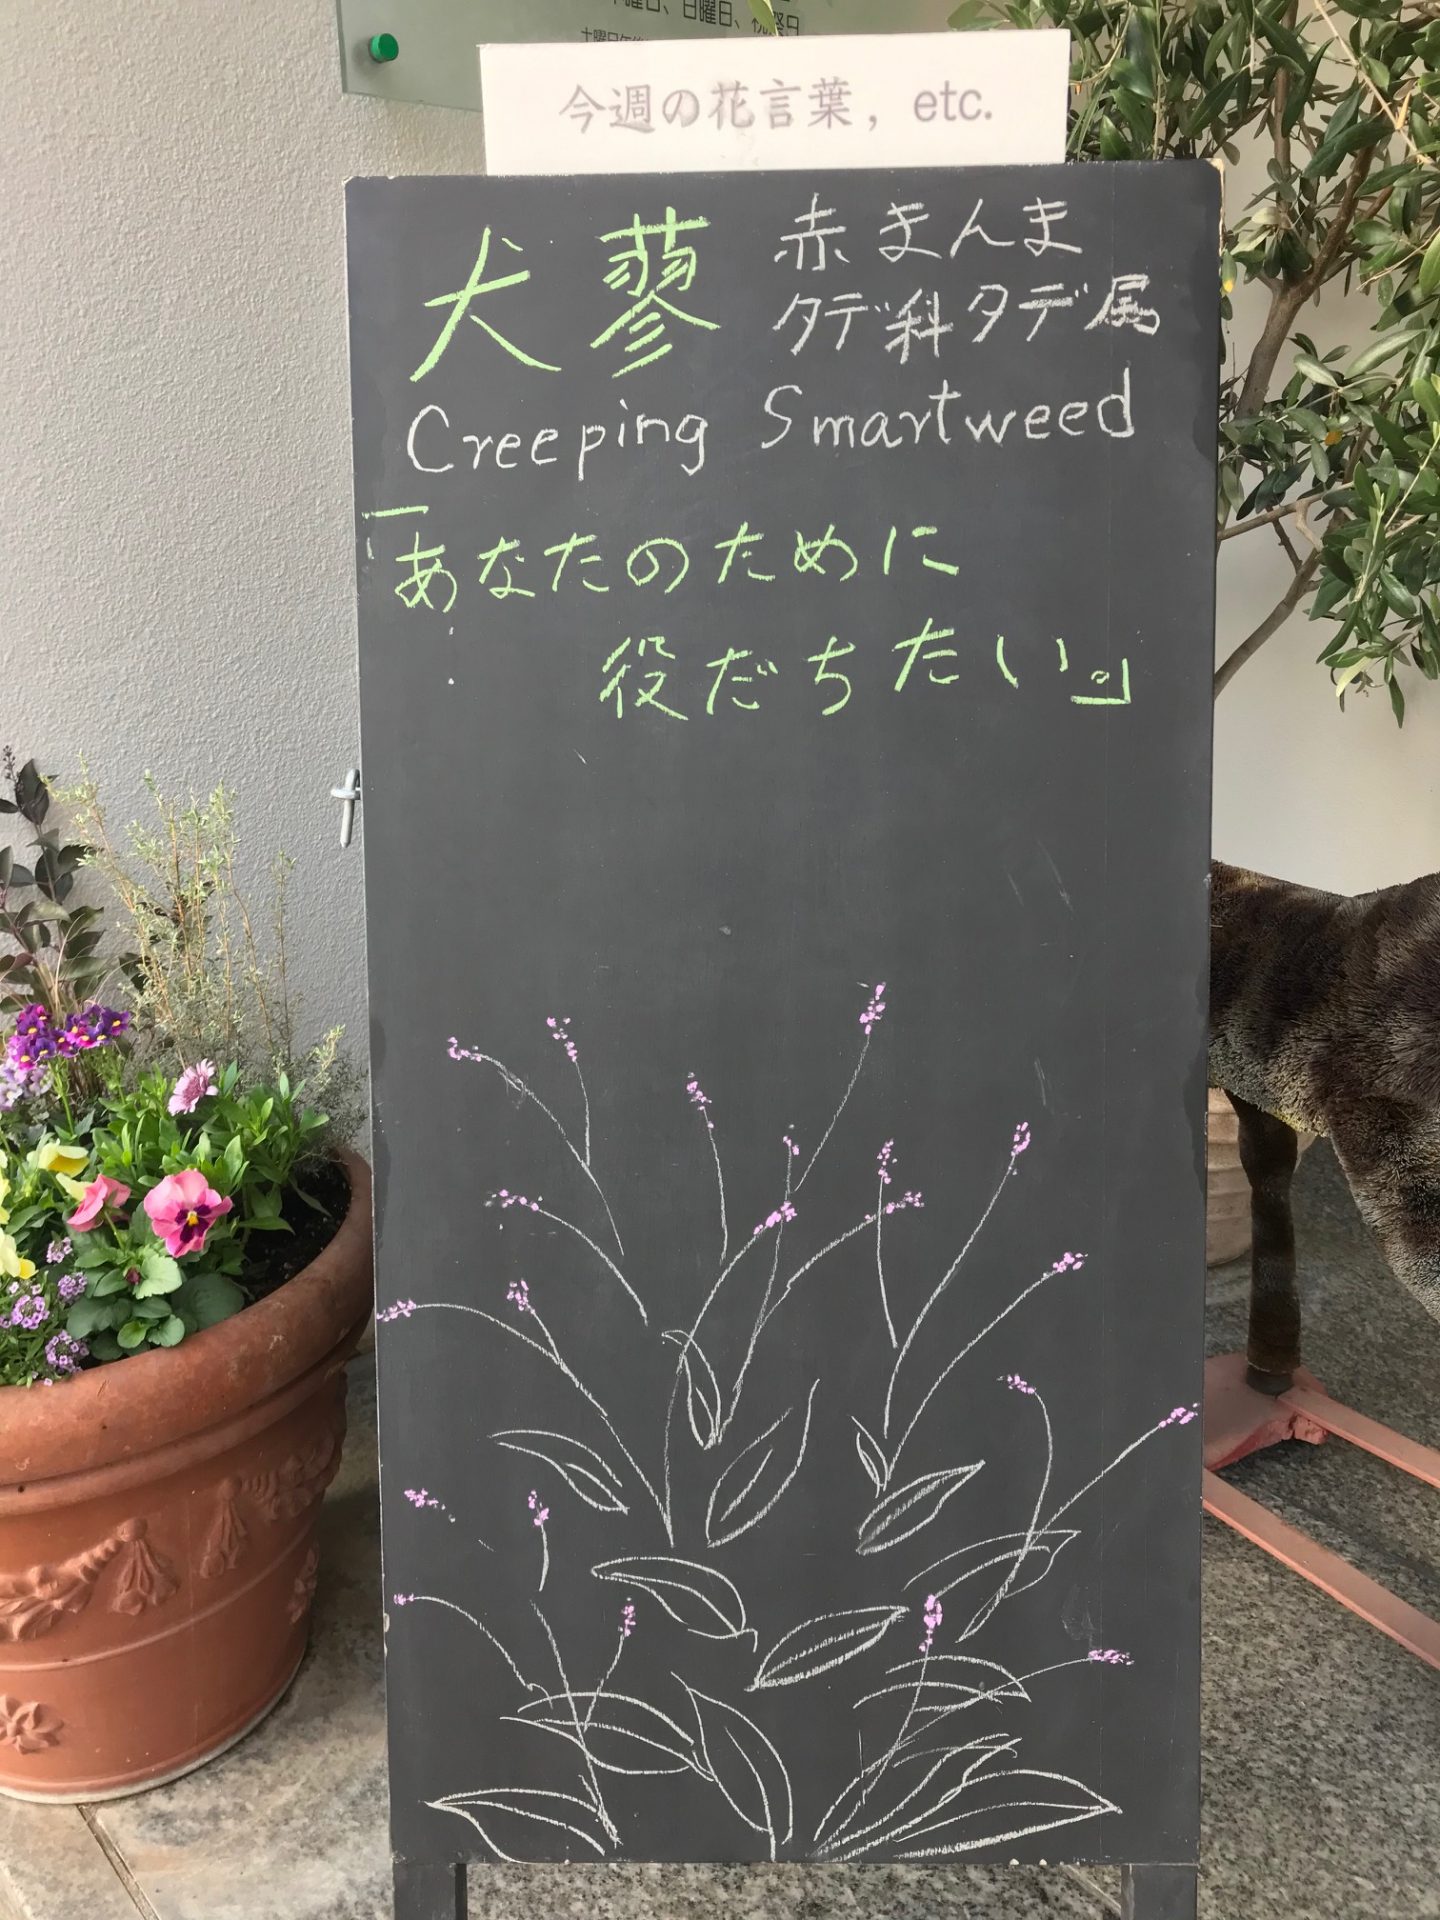 曜日、日曜日、祝祭日
今週の花言葉, etc.
犬蓼
赤まんま
タデ科タデ属
Creeping Smartweed
「あなたのために
役だちたい。」